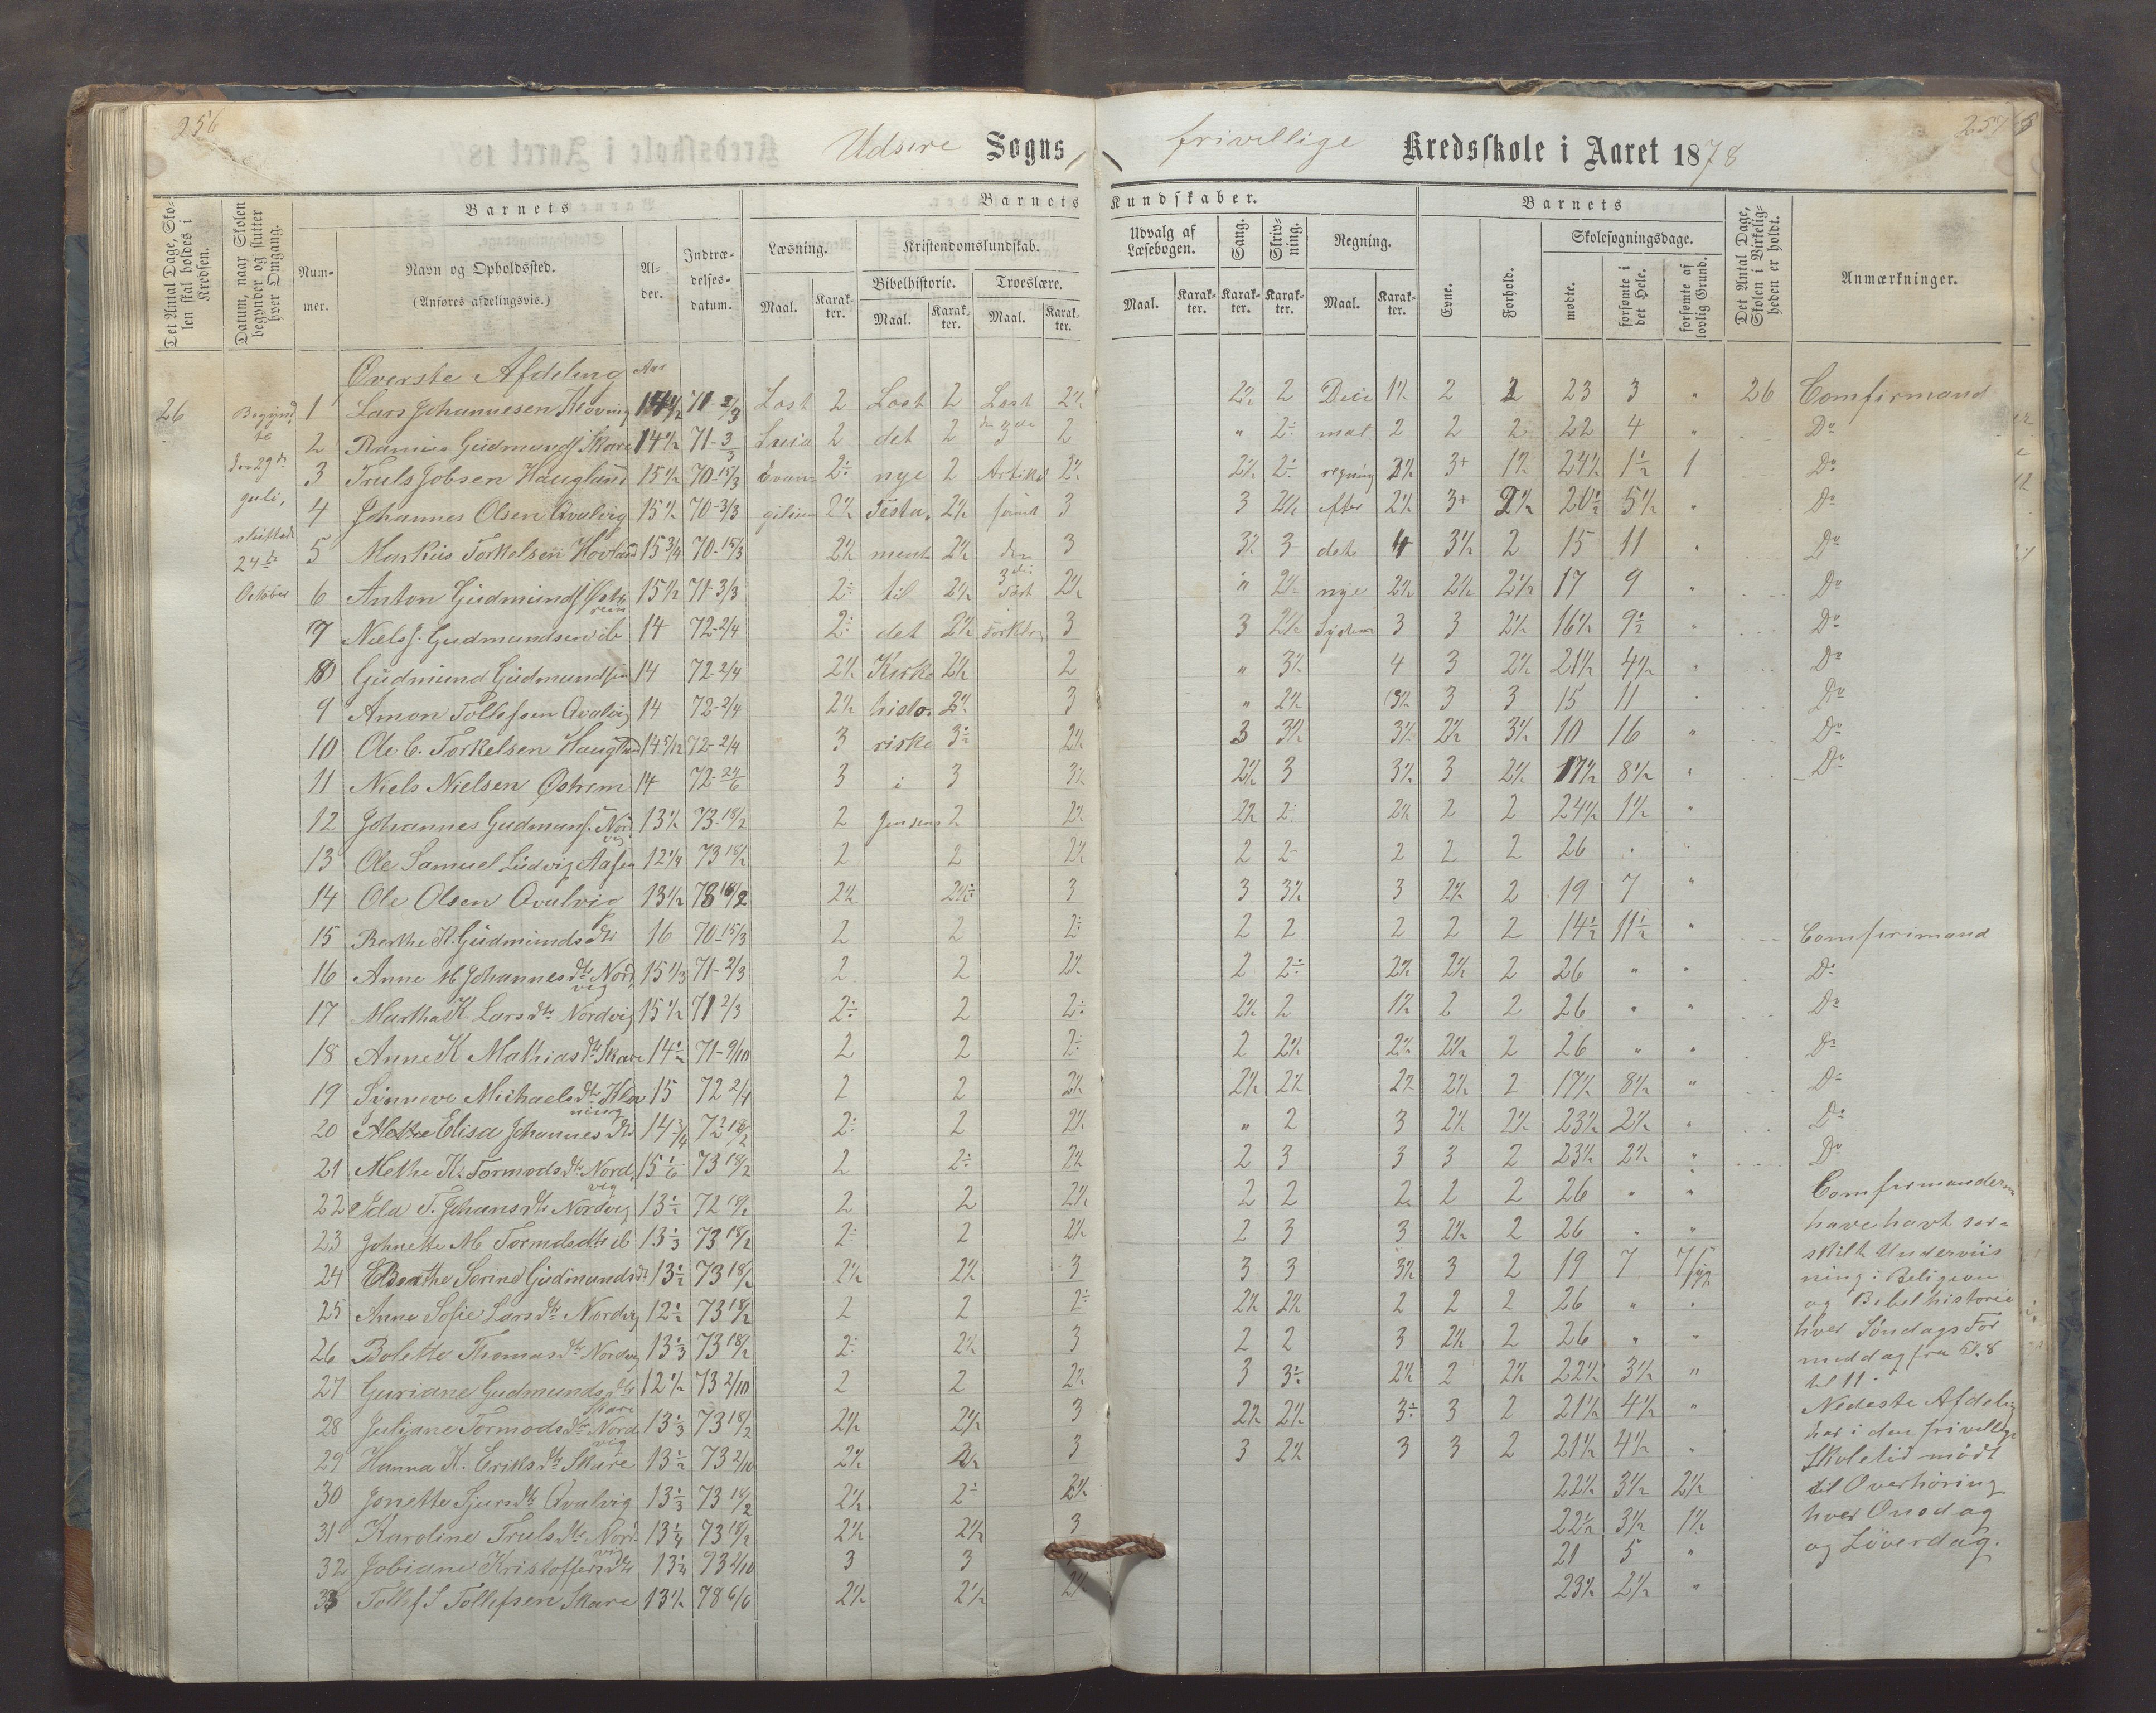 256
257
Udsire Sogns frivillige Kredsskole i Aaret 1878
Det Antal Dage, Skolen skal holdes i Kredsen.
Datum, naar Skolen begynder og slutter hver Omgang.
Barnets
Nummer.
Navn og Opholdssted.
(Anføres afdelingsvis.)
Alder.
Indtrædelsesdatum.
Barnets Kundskaber.
Læsning.
Maal. Karakter.
Kristendomskundskab.
Bibelhistorie.
Maal. Karakter.
Troeslære.
Maal. Karakter.
Udvalg af Læsebogen.
Maal. Karakter.
Sang.
Karakter.
Skrivning.
Karakter.
Regning.
Maal. Karakter.
Barnets
Evne.
Forhold.
Skolesøgningsdage.
mødte.
forsømte i det Hele.
forsømte af lovlig Grund.
Det Antal Dage, Skolen i Virkeligheden er holdt.
Anmærkninger.
Øverste Afdeling Aar
26 Begyndte 1 Lars Johannesen Kløvning 14 1/2 71 2/3 Læst 2 Læst 2 Læst 2 1/2 2 1/2 2 Deci 1 1/2 2 2 23 3 " 26 Comfirmand
2 Gudmunds. Skare 14 1/2 71-3/3 2 det 2 2 " 2÷ mal 2 2 2 22 4 " Do
den 29de 3 Truls Jobsen Haugland 15 1/2 70-15/3 Evan- 2÷ nye 2 Artikel 2 1/2 2 1/2 2÷ regning 3 1/2 3+ 1 1/2 24 1/2 1 1/2 1 Do
juli, 4 Johannes Olsen Qvalvig 15 1/2 70-3/3 gilium 2 1/2 Testa- 2 1/2 samt 3 3 2 1/2 efter 2 1/2 3+ 2 1/2 20 1/2 5 1/2 " Do
sluttede 24de 5 Markus Torkelsen Hovland 15 3/4 70-15/3 2 1/2 mente 2 1/2 den 3 3 1/2 3 det 4 3 1/2 2 15 11 " Do
October 6 Anton Gudmunds. Østrem 15 1/2 71-3/3 2÷ til 2 1/2 3die 2 1/2 " 2 1/2 nye 2 1/2 2 1/2 2 1/2 17 9 " Do
7 Niels J. Gudmundsen ib 14 72-2/4 2÷ det 2 1/2 3 3 2 1/2 System 3 3 2 1/2 16 1/2 9 1/2 " Do
8 Gudmund Gudmundsen 14 72-2/4 2 1/2 Kirke 2 1/2 2 " 3 1/2 4 3 2 1/2 21 1/2 4 1/2 " Do
9 Amon Tollefsen Qvalvig 14 72-2/4 2 1/2 histo- 2 1/2 3 " 2 1/2 3 1/2 3 3 15 11 " Do
10 Ole C. Torkelsen Haugland 14 5/12 72-2/4 3 riske 3 1/2 2 1/2 3 3 1/2 3 1/2 2 1/2 3 1/2 10 16 " Do
11 Niels Nielsen Østrem 14 72-24/6 3 i 3 3 1/2 2 1/2 3 3 1/2 3 2 1/2 17 1/2 8 1/2 " Do
12 Johannes Gudmuns. Nordvig 13 1/2 73-18/2 2 Jensens 2 2 1/2 2 1/2 2÷ 2 1/2 2 2 24 1/2 1 1/2 "
13 Ole Samuel Ludvig Aasen 12 1/4 73 18/2 2 2 2 1/2 2 2- 2 2 2 26 " "
14 Ole Olsen Qvalvig 13 1/2 73 18/2 2 1/2 2 1/2÷ 3 3 3 1/2 3 2 1/2 2 19 7 "
15 Berthe K. Gudmundsdtr 16 70-15/3 2 2 2÷ 2 2 2 2 2 14 1/2 11 1/2 " Comfirmand
16 Anne M Johannesdtr Nordvig 15 1/3 71-2/3 2 2 2 1/2 2 2÷ 2 1/2 2 1/2 2 26 " " Do
17 Martha K Larsdtr Nordvig 15 1/2 71 2/3 2÷ 2 2÷ 2 1/2 2 1 1/2 2 2 26 " " Do
18 Anne K Mathiasdtr Skare 14 1/2 71-9/10 2 2 2÷ 2 2 1/2 2 1/2 2 1/2 2 26 " " Do
19 Sinneve Michaelsdtr Kløvning 15 72 2/4 2 2 2 1/2 2 1/2 2 1/2 2 1/2 2 1/2 2 17 1/2 8 1/2 " Do
20 Mette Elisa Johannesdtr 14 3/4 72 18/2 2÷ 2 2 1/2 " 2 3 2 1/2 2 1/2 23 1/2 2 1/2 " Do
21 Methe K. Tormodsdtr Nordvig 15 1/6 73 18/2 2 2÷ 2 1/2 2 3 3 3 2 23 1/2 2 1/2 " Do
22 Ida T. Johansdtr Nordvig 13 1/2 72 18/2 2 2 2 1/2 2 2 2 2 2 26 " " Comfirmanderne
23 Johnette M Tormdsdtr ib 13 1/3 73 18/2 2÷ 2 2 1/2 2 3 3 2 1/2 2 26 " " have havt sær-
24 Berthe Serine Gudmundsdtr 13 1/2 73 18/2 2 1/2 2 1/2 3 3 3 3 1/2 3 2 19 7 7 syg skilt Underviis
25 Anne Sofie Larsdtr Nordvig 12 1/2 73 18/2 2 2 2÷ 2 1/2 2 1/2 2 2 2 26 " " ning i Religion og Bibelhistorie
26 Bolette Thomasdtr Nordvig 13 1/3 73 18/2 2÷ 2 1/2 3 2 2 3 2 1/2 2 26 " " hver Søndags For
27 Guriane Gudmundsdtr Skare 12 1/2 73 2/10 2 2 2 1/2 3 3÷ 2 1/2 2 2 1/2 22 1/2 3 1/2 " meddag fra Kl. 8 til 11.
28 Juliane Tormodsdtr Nordvig 13 1/3 73 18/2 2 1/2 2 1/2 3 2 1/2 2 1/2 3÷ 3 2 21 1/2 4 1/2 " Nedeste Afdeling
29 Hanna K. Eriksdtr Skare 13 1/2 73 2/10 2 1/2 2 1/2 3 3 2 1/2 3 3 2 21 1/2 4 1/2 " har i den frivillige Skoletid mødt
30 Jonette Sjursdtr Qvalvig 13 1/3 73 18/2 2 1/2 2÷ 2 1/2 22 1/2 3 1/2 2 1/2 til Overhøring
31 Karoline Trulsdtr Nordvig 13 1/4 73 18/2 2 1/2 2 1/2 3 22 1/2 3 1/2 1 1/2 hver Onsdag
32 Jobiane Kristoffersdtr 13 1/4 73 2/10 3 3 21 5 " og Löverdag.
33 Tollef S Tollefsen Skare 13 1/2 78 6/6 2 1/2 2 1/2 2 1/2 23 1/2 2 1/2 "